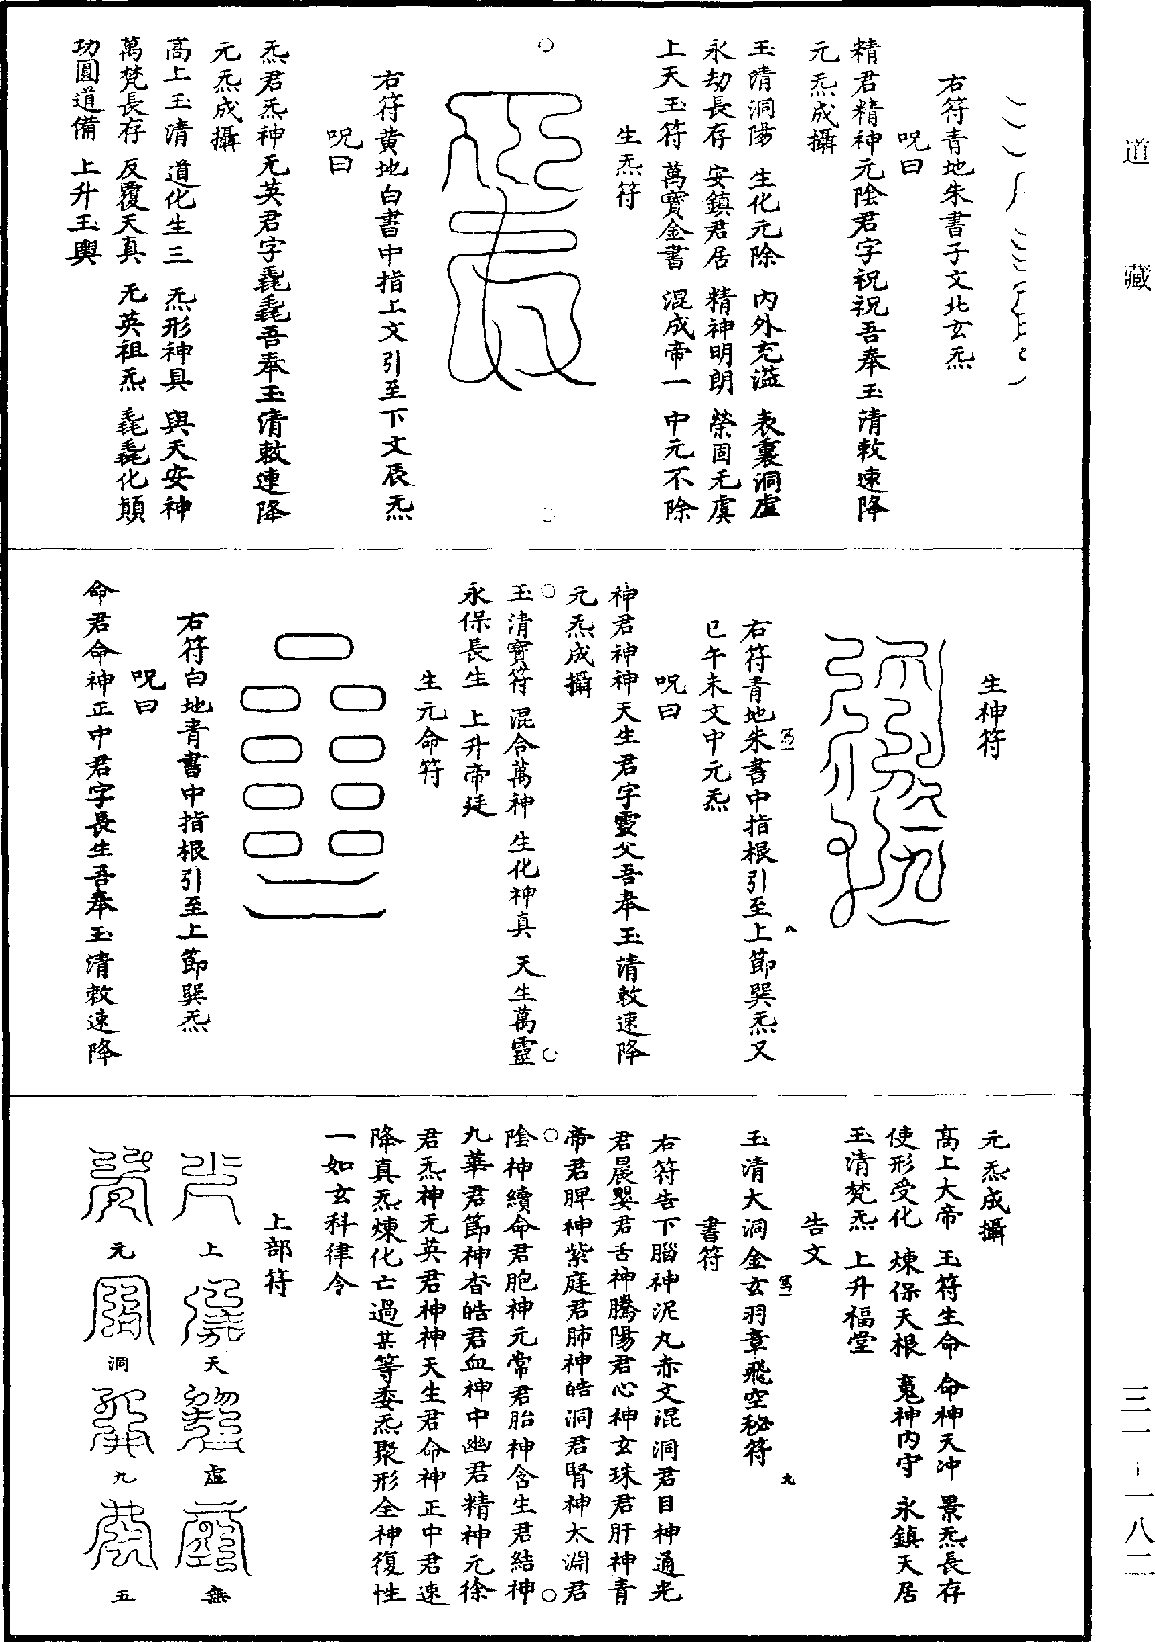 道藏
三一—一八二
右符青地朱書子文北玄炁
呪曰
精君精神元陰君字祝祝吾奉玉清敕速降
元炁成攝
玉清洞陽 生化元除 內外充溢 表裏洞虛
永劫長存 安鎮君居 精神明朗 榮固无虞
上天玉符 萬寶金書 混成帝一 中元不除
生炁符
右符黃地白書中指上文引至下文辰炁
呪曰
炁君炁神无英君字毳毳吾奉玉清敕速降
元炁成攝
高上玉清 道化生三 炁形神具 與天安神
萬梵長存 反覆天真 无英祖炁 毳毳化顛
功圓道備 上升玉輿
生神符
右符青地朱書中指根引至上節巽炁又
巳午未文中元炁
呪曰
神君神神天生君字靈父吾奉玉清敕速降
元炁成攝
玉清寶符 混合萬神 生化神真 天生萬靈
永保長生 上升帝廷
生元命符
右符白地青書中指根引至上節巽炁
呪曰
命君命神正中君字長生吾奉玉清敕速降
元炁成攝
高上大帝 玉符生命 命神天沖 景炁長存
使形受化 煉保天根 嵬神內守 永鎮天居
玉清梵炁 上升福堂
告文
玉清大洞金玄羽章飛空秘符
書符
右符告下腦神泥丸赤文混洞君目神通光
君晨嬰君舌神騰陽君心神玄珠君肝神青
帝君脾神紫庭君肺神皓洞君腎神太淵君
陰神續命君胞神元常君胎神含生君結神
九華君節神杳皓君血神中幽君精神元徐
君炁神无英君神神天生君命神正中君速
降真炁煉化亡過某等委炁聚形全神復性
一如玄科律令
上部符
上 天 虛 無
元 洞 九 五